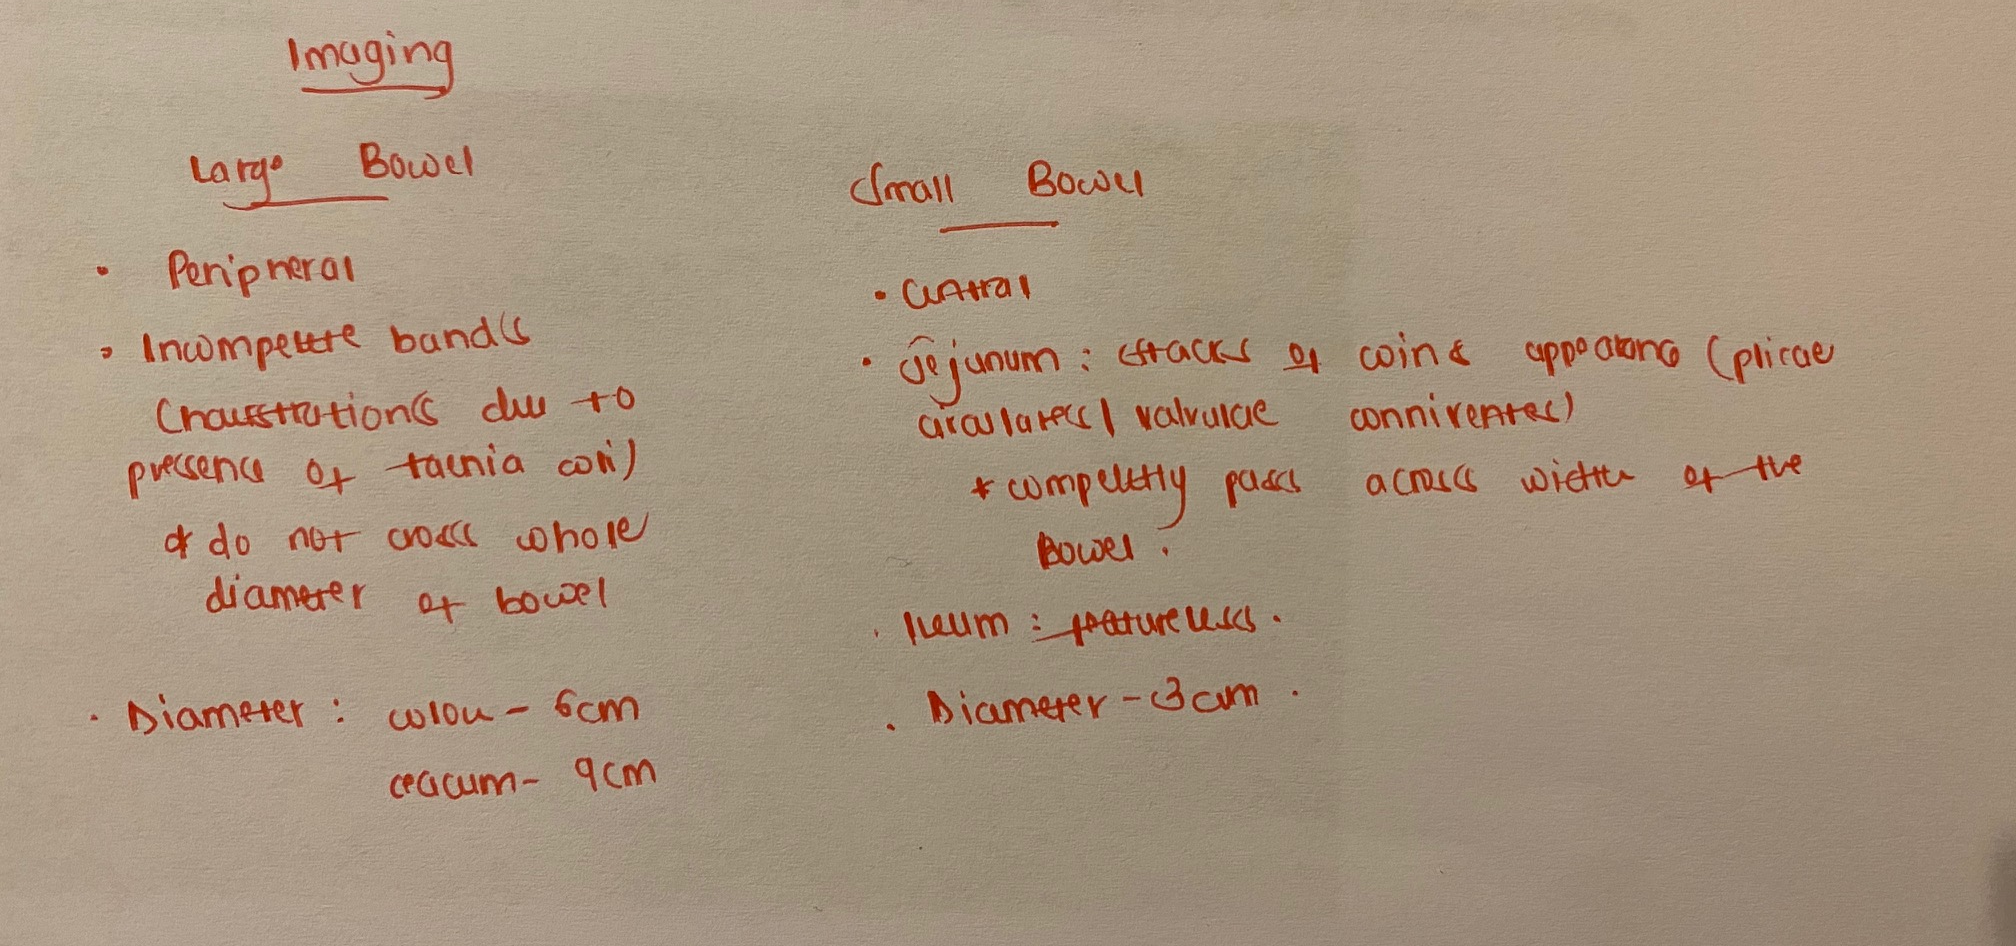 Imaging
Large Bowel
• Peripheral
• Incompelete bands
(haustrations due to
pressence of taenia coli)
* do not cross whole
diameter of bowel
• Diameter : colon - 6cm
ceacum - 9cm
Small Bowel
• Central
• Jejunum : stacks of coins appearance (plicae
circulares / valvulae conniventes)
* compeletly pass across width of the
Bowel .
• Ileum : featureless .
• Diameter - 3cm .